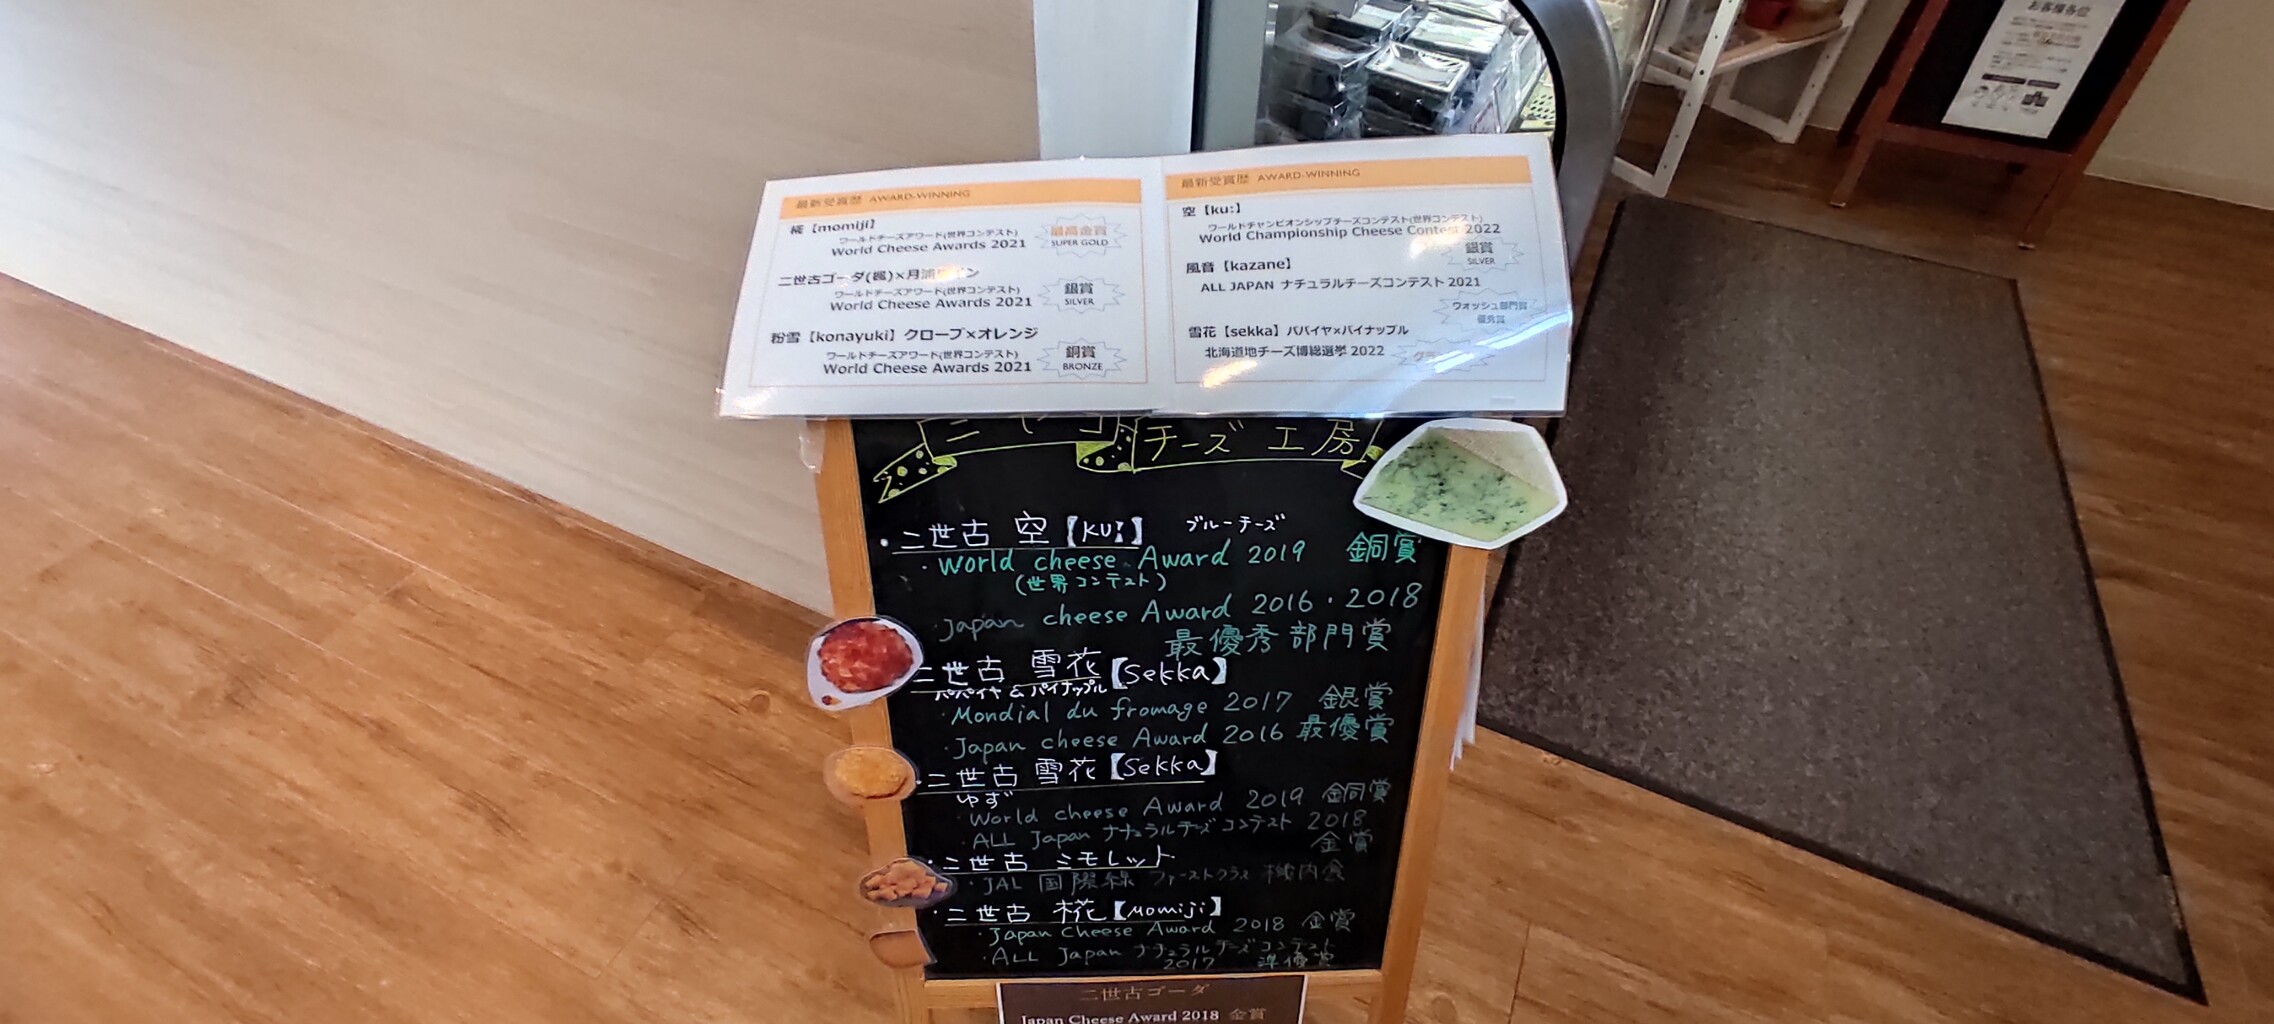 お客様各位
最新受賞歴 AWARD-WINNING
椛【momiji】
ワールドチーズアワード(世界コンテスト)
World Cheese Awards 2021
最高金賞
SUPER GOLD
二世古ゴーダ(楓)×月浦ワイン
ワールドチーズアワード(世界コンテスト)
World Cheese Awards 2021
銀賞
SILVER
粉雪【konayuki】クローブ×オレンジ
ワールドチーズアワード(世界コンテスト)
World Cheese Awards 2021
銅賞
BRONZE
最新受賞歴 AWARD-WINNING
空【ku:】
ワールドチャンピオンシップチーズコンテスト(世界コンテスト)
World Championship Cheese Contest 2022
銀賞
SILVER
風音【kazane】
ALL JAPAN ナチュラルチーズコンテスト2021
ウォッシュ部門賞
優秀賞
雪花【sekka】パパイヤ×パイナップル
北海道地チーズ博総選挙 2022
チーズ工房
・二世古 空【KU:】 ブルーチーズ
・World cheese Award 2019 銅賞
(世界コンテスト)
・Japan cheese Award 2016・2018
最優秀部門賞
二世古 雪花【Sekka】
パパイヤ & パイナップル
・Mondial du fromage 2017 銀賞
・Japan cheese Award 2016 最優賞
・二世古 雪花【Sekka】
ゆず
・World cheese Award 2019 銅賞
・ALL Japan ナチュラルチーズコンテスト 2018
金賞
・二世古 ミモレット
・JAL 国際線 ファーストクラス 機内食
・二世古 椛【Momiji】
・Japan Cheese Award 2018 金賞
・ALL Japan ナチュラルチーズコンテスト
2017 準優賞
二世古ゴーダ
Japan Cheese Award 2018 金賞